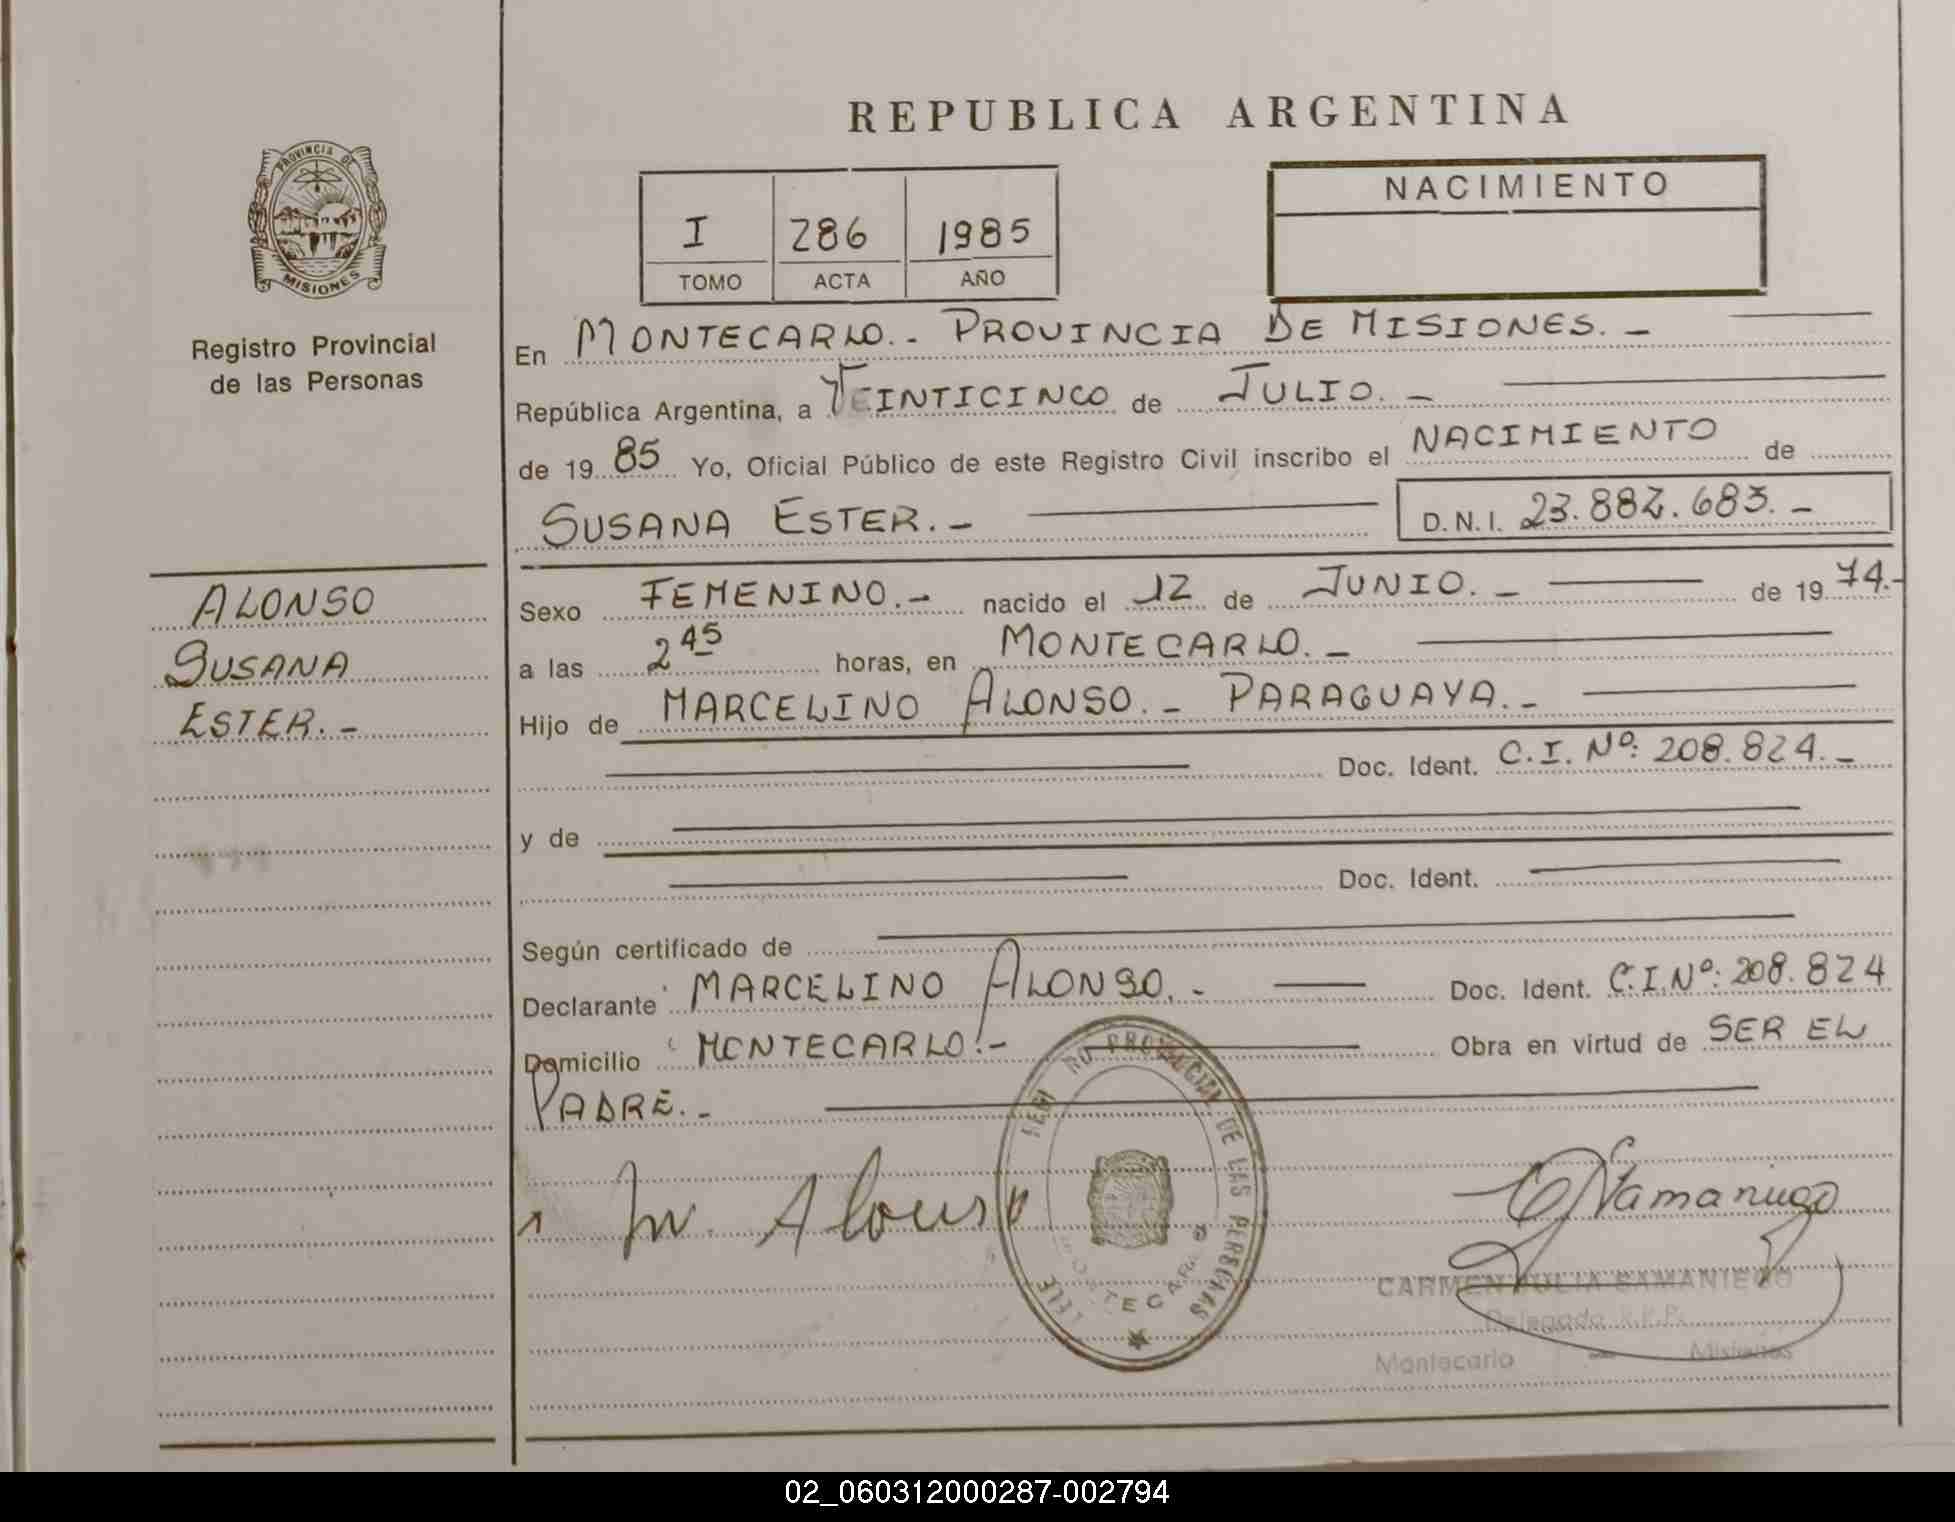 REPUBLICA ARGENTINA
PROVINCIA DE
MISIONES
Registro Provincial
de las Personas
I 286 1985
TOMO ACTA AÑO
NACIMIENTO
En MONTECARLO.- PROVINCIA DE MISIONES.-
República Argentina, a VEINTICINCO de JULIO.-
de 1985 Yo, Oficial Público de este Registro Civil inscribo el NACIMIENTO de
SUSANA ESTER.- D.N.I. 23.882.683.-
ALONSO
SUSANA
ESTER.-
Sexo FEMENINO.- nacido el 12 de JUNIO.- de 1974.-
a las 2 45 horas, en MONTECARLO.-
Hijo de MARCELINO ALONSO.- PARAGUAYA.-
Doc. Ident. C.I. Nº: 208.824.-
y de
Doc. Ident.
Según certificado de
Declarante MARCELINO ALONSO.- Doc. Ident. C.I.Nº: 208.824
Domicilio MONTECARLO.- Obra en virtud de SER EL
PADRE.-
M. Alonso
PROVINCIAL DE LAS PERSONAS
CARMEN JULIA SAMANIEGO
Delegada R.P.P.
Montecarlo - Misiones
02_060312000287-002794